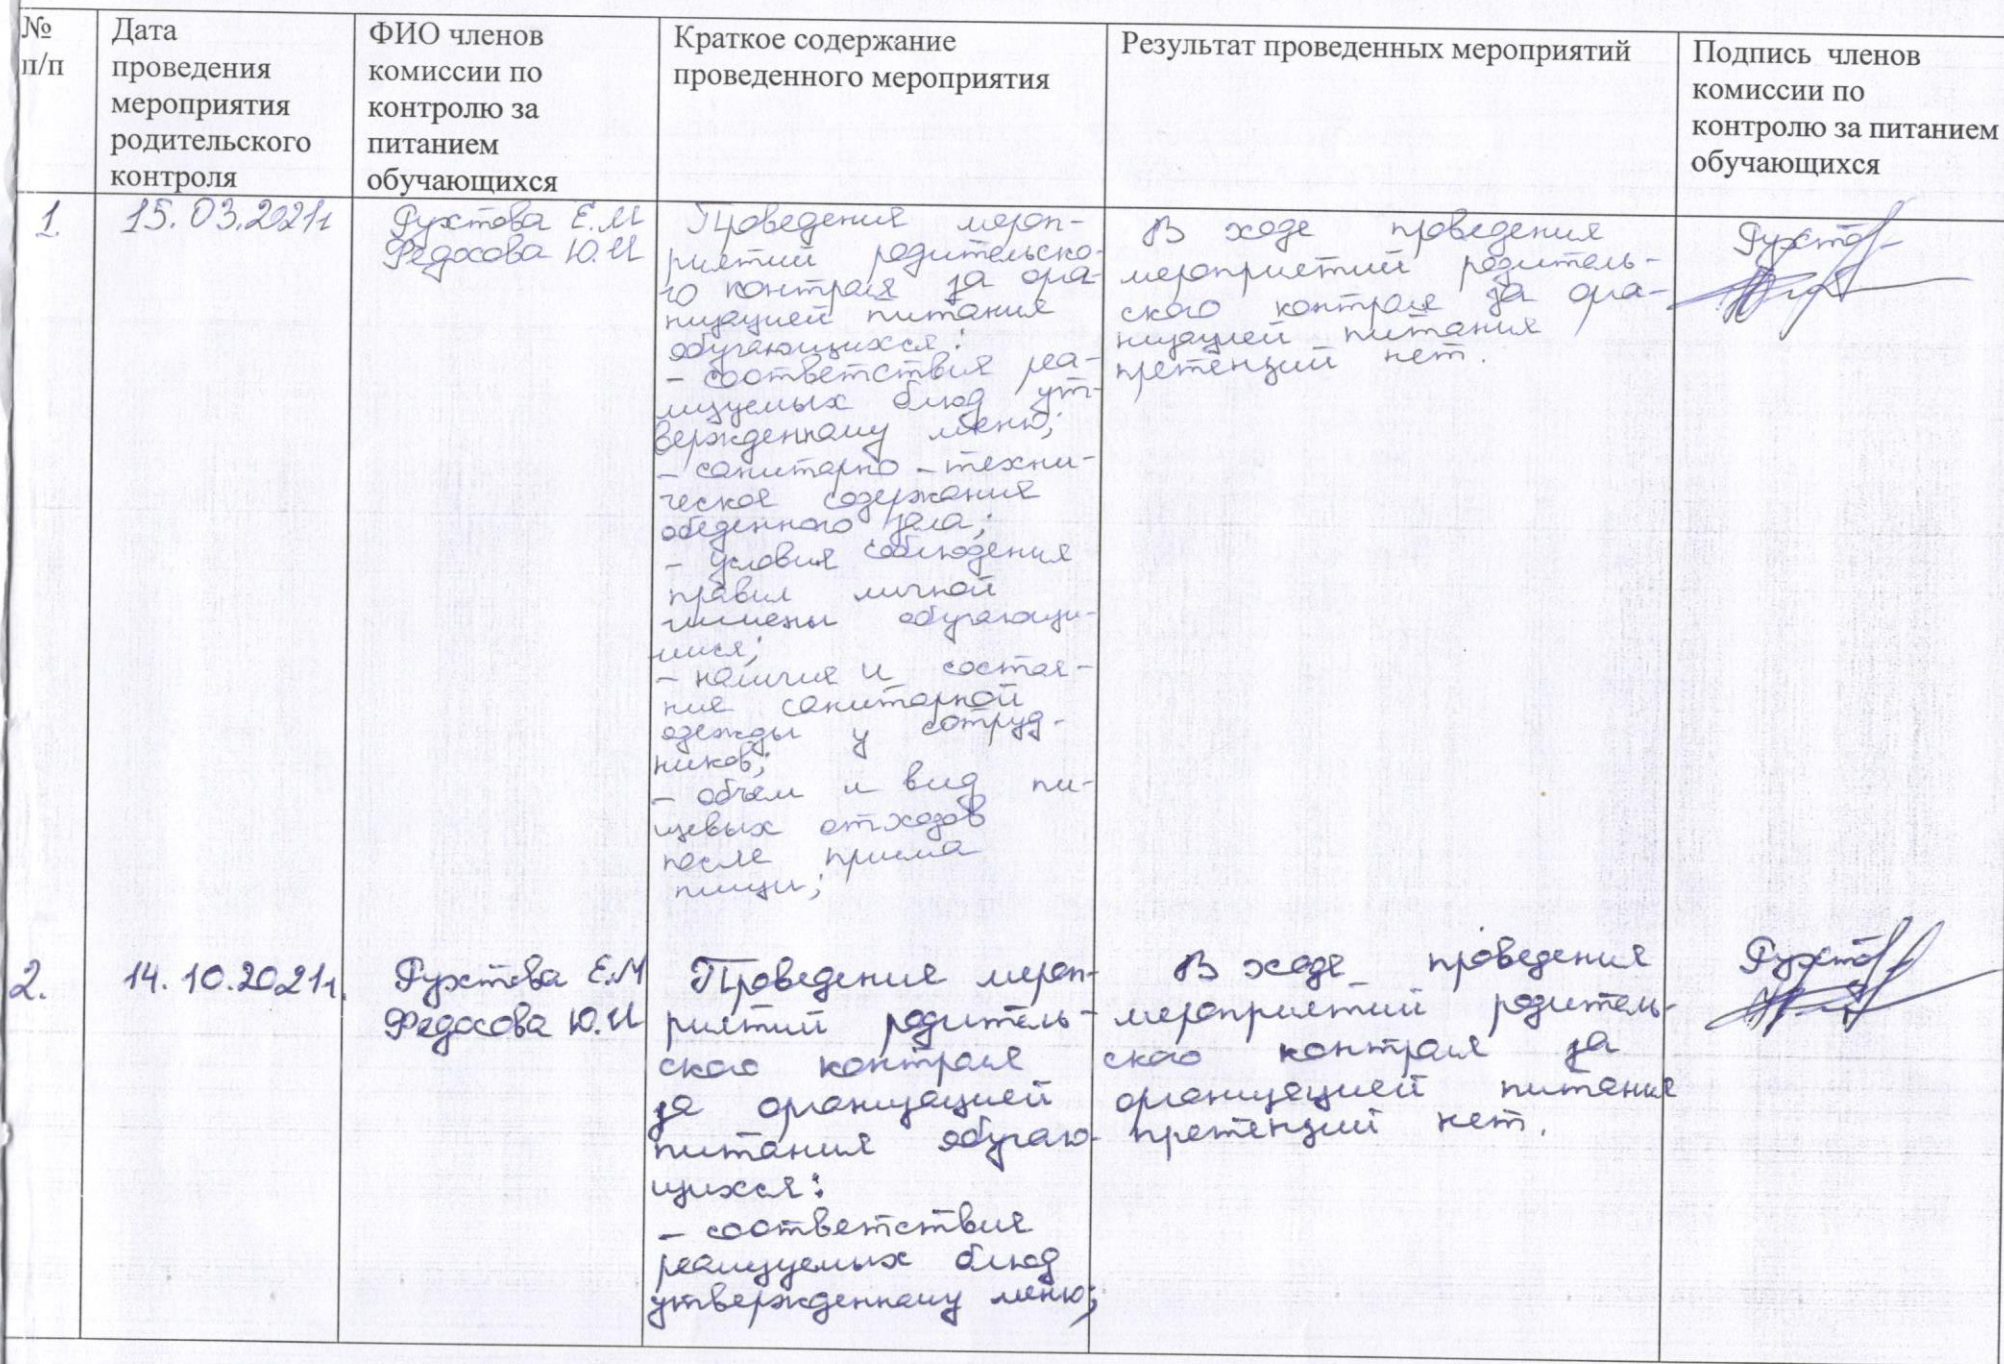 №
п/п
Дата
проведения
мероприятия
родительского
контроля
ФИО членов
комиссии по
контролю за
питанием
обучающихся
Краткое содержание
проведенного мероприятия
Результат проведенных мероприятий
Подпись членов
комиссии по
контролю за питанием
обучающихся
1.
15.03.2021г
Рухтова Е.М
Федосова Ю.И
Проведения мероп-
риятий родительско-
го контроля за орга-
низацией питания
обучающихся:
- соответствия реа-
лизуемых блюд ут-
вержденному меню;
- санитарно-техни-
ческое содержания
обеденного зала;
- условия соблюдения
правил личной
гигиены обучающи-
мися;
- наличия и состоя-
ние санитарной
одежды у сотруд-
ников;
- объем и вид пи-
щевых отходов
после приема
пищи;
В ходе проведения
мероприятий родитель-
ского контроля за орга-
низацией питания
претензий нет.
Рухто
2.
14.10.2021г.
Рухтова Е.М
Федосова Ю.И
Проведения мероп-
риятий родитель-
ского контроля
за организацией
питания обучаю-
щихся:
- соответствия
реализуемых блюд
утвержденному меню;
В ходе проведения
мероприятий родитель-
ского контроля за
организацией питания
претензий нет.
Рухто